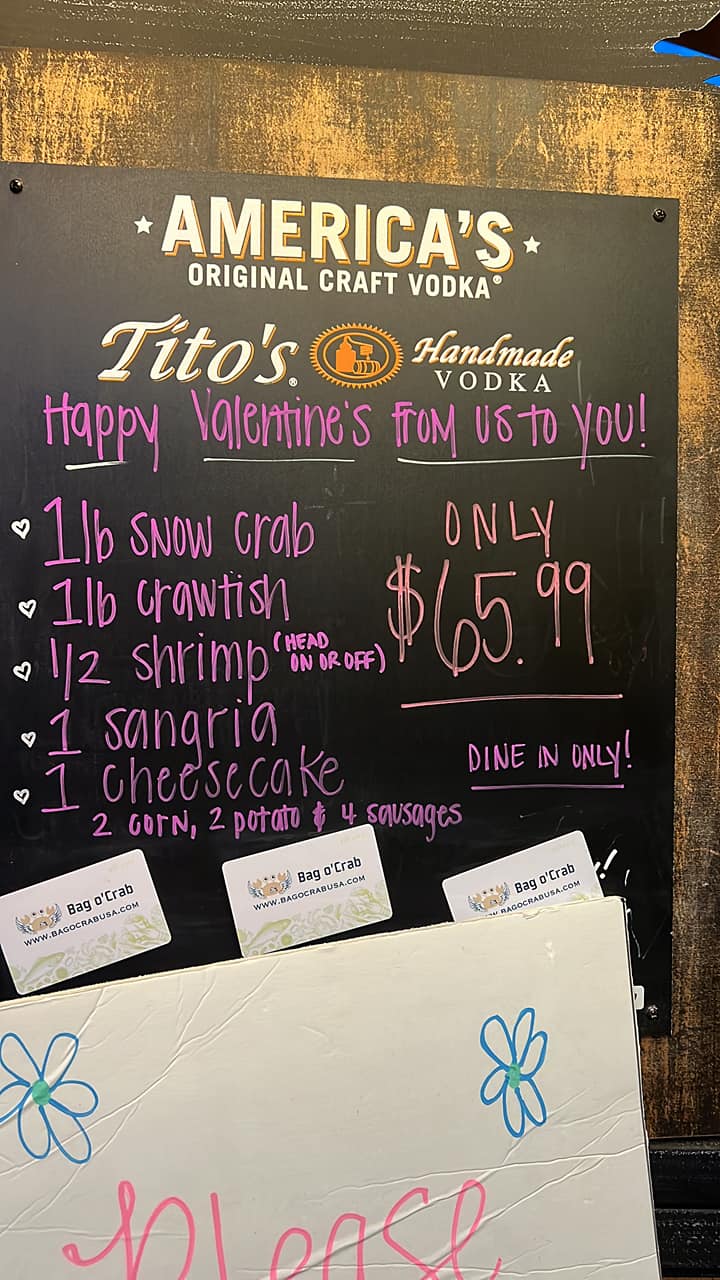 AMERICA'S
ORIGINAL CRAFT VODKA®
Tito's® Handmade
VODKA
Happy Valentine's FROM US TO YOU!
1lb SNOW crab
1lb crawfish
1/2 shrimp (HEAD ON OR OFF)
1 sangria
1 cheesecake
2 corn, 2 potato & 4 sausages
ONLY
$65.99
DINE IN ONLY!
Bag o'Crab
WWW.BAGOCRABUSA.COM
Bag o'Crab
WWW.BAGOCRABUSA.COM
Bag o'Crab
WWW.BAGOCRABUSA.COM
please